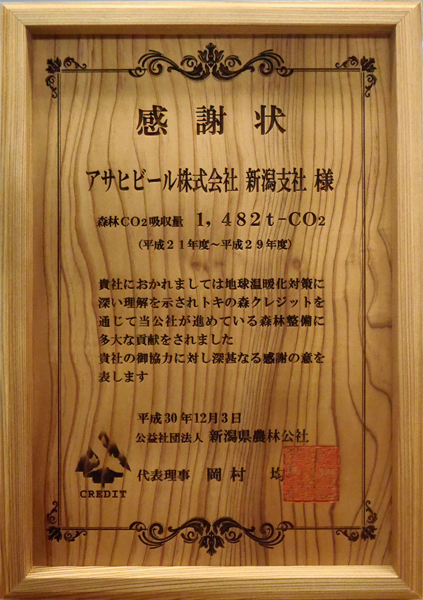 感謝状
アサヒビール株式会社 新潟支社 様
森林CO2吸収量 1, 482t-CO2
(平成21年度～平成29年度)
貴社におかれましては地球温暖化対策に
深い理解を示されトキの森クレジットを
通じて当公社が進めている森林整備に
多大な貢献をされました
貴社の御協力に対し深甚なる感謝の意を
表します
平成30年12月3日
公益社団法人 新潟県農林公社
CREDIT
代表理事 岡村 均